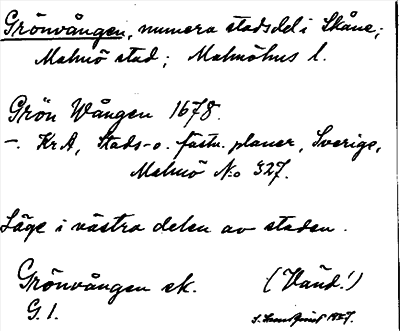 Grönvången, numera stadsdel i Skåne;
Malmö stad; Malmöhus l.
Grön Wången 1678.
–. KrA, Stads- o. fästn. planer, Sverige,
Malmö N:o 327.
Läge i västra delen av staden.
Grönvången sk. (Vänd!)
G. 1. 1927.